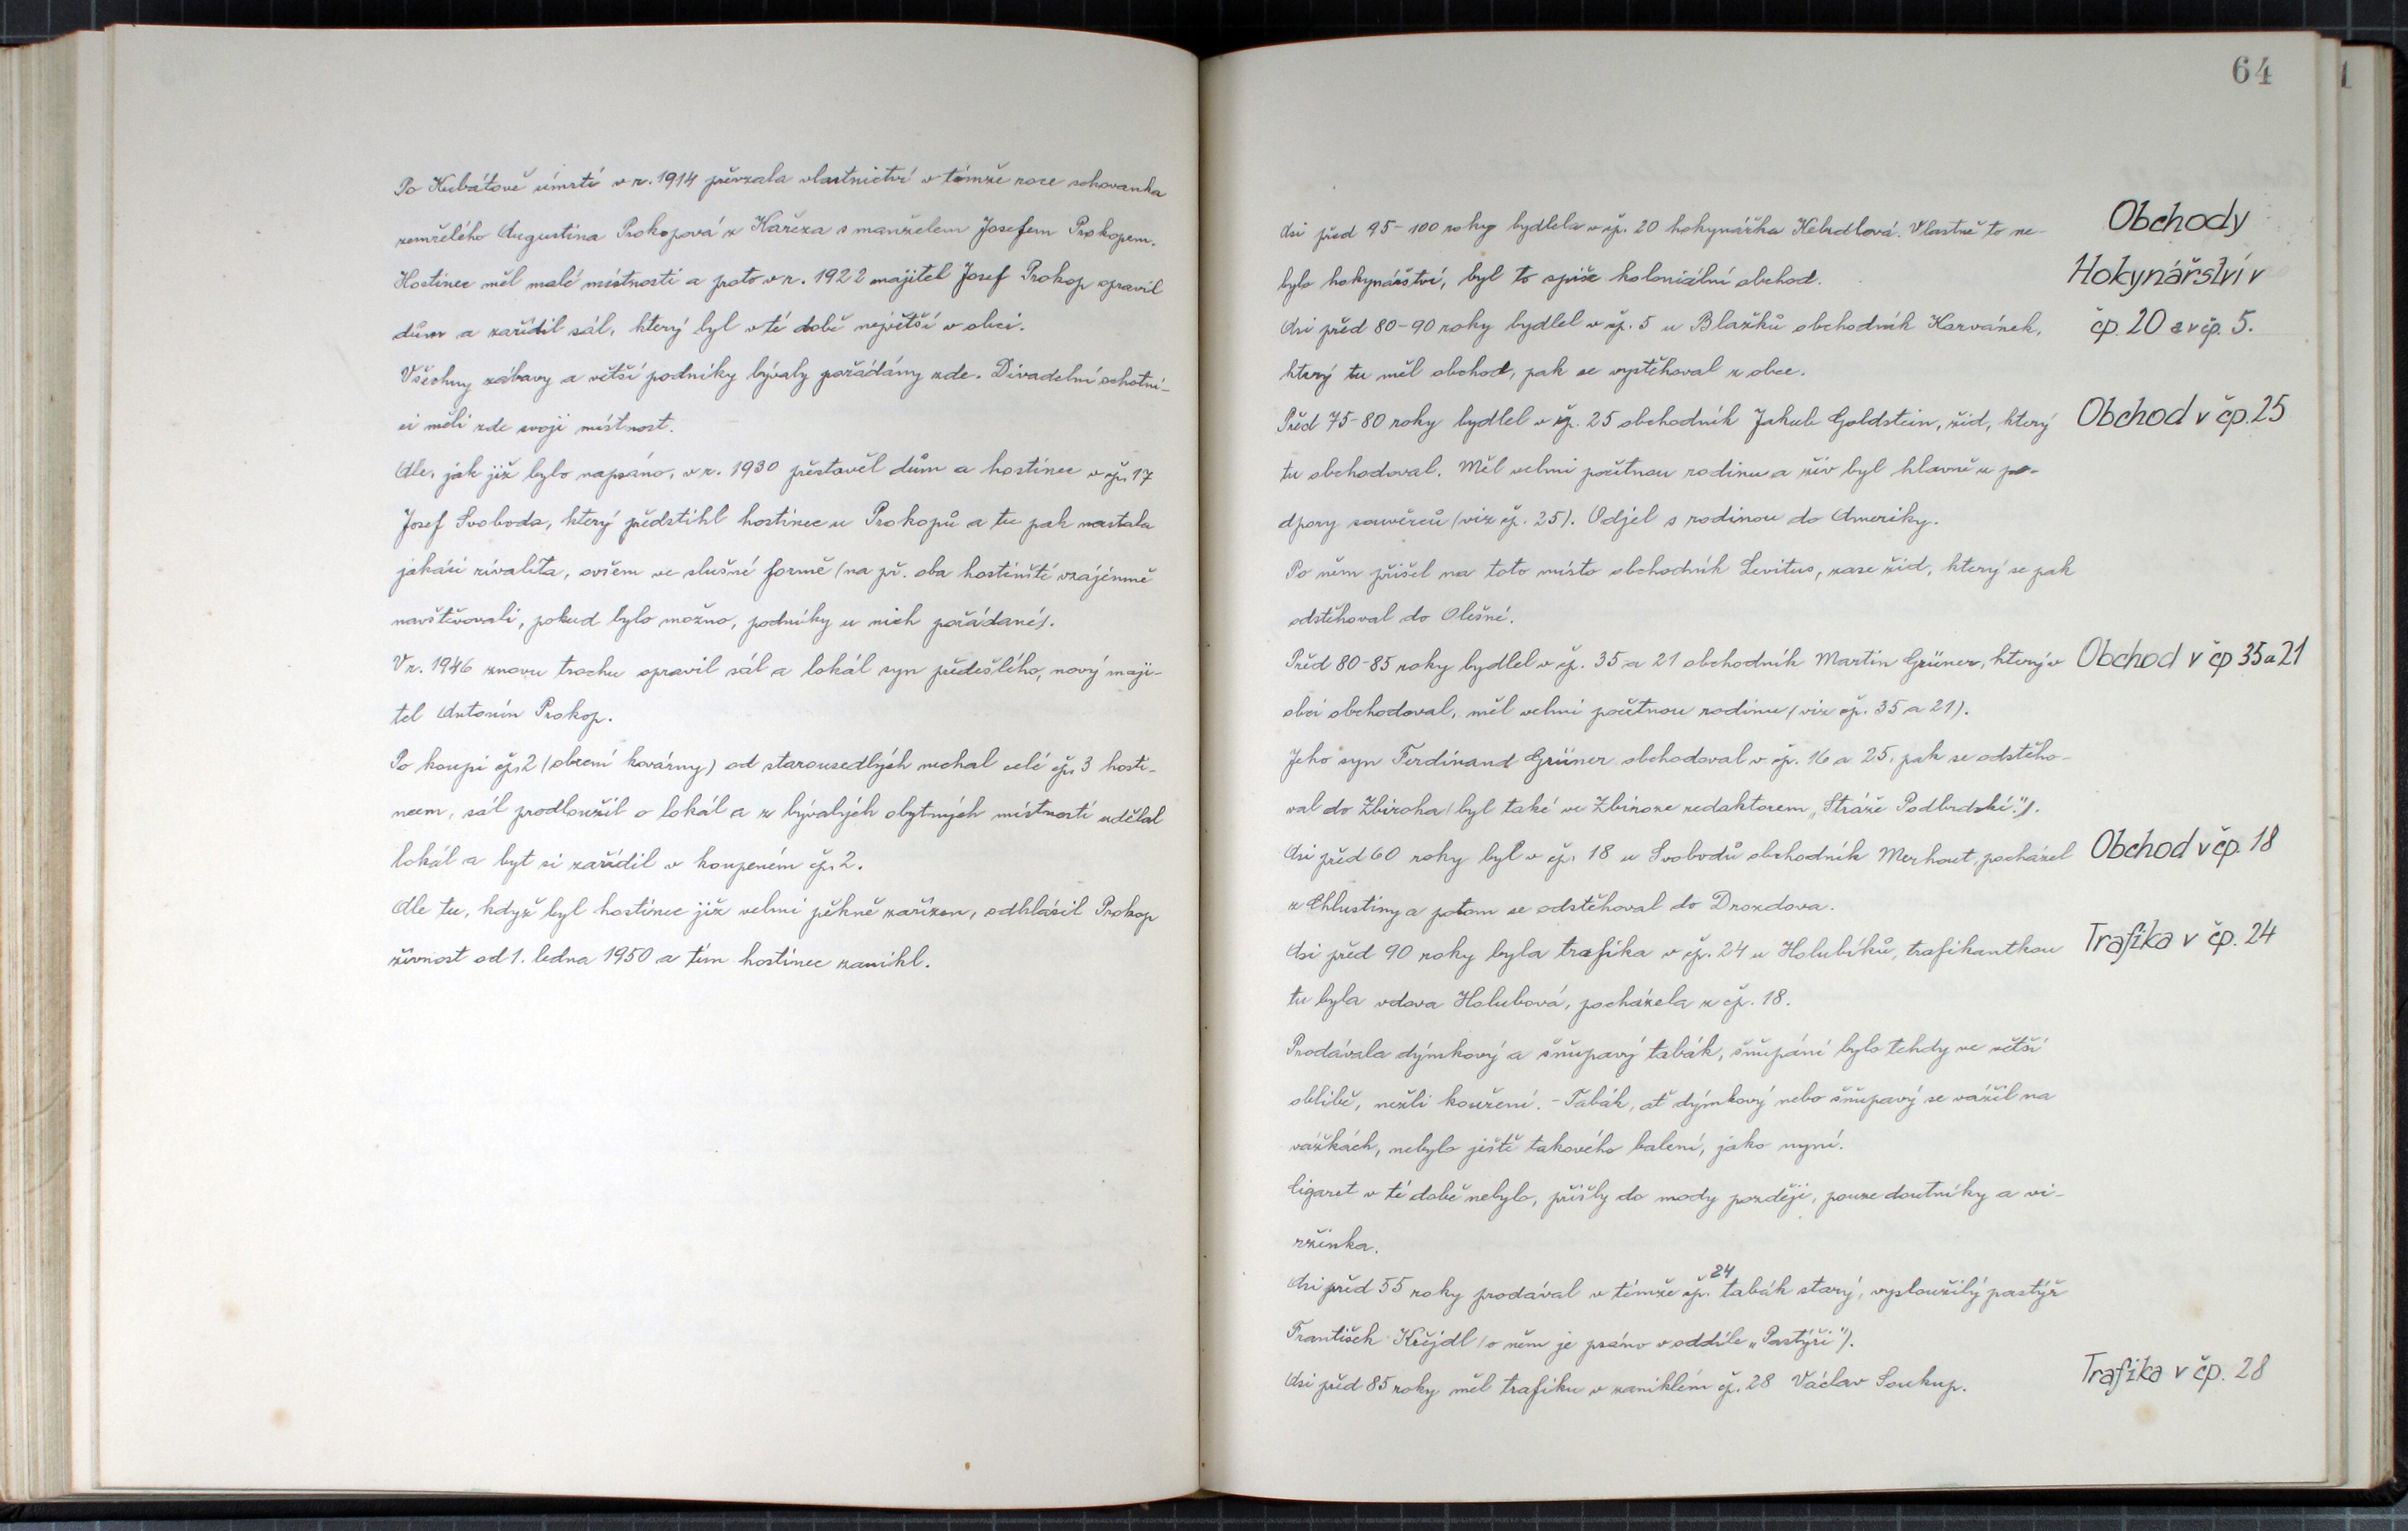 Po Kubátově úmrtí v r. 1914 převzala vlastnictví v témže roce schovanka
zemřelého Augustina Prokopová z Kařeza s manželem Josefem Prokopem.
Hostinec měl malé místnosti a proto v r. 1922 majitel Josef Prokop opravil
dům a zařídil sál, který byl v té době největší v obci.
Všechny zábavy a větší podniky bývaly pořádány zde. Divadelní ochotní-
ci měli zde svoji místnost.
Ale, jak již bylo napsáno, v r. 1930 přestavěl dům a hostinec v čp. 17
Josef Svoboda, který předstihl hostinec u Prokopů a tu pak nastala
jakási rivalita, ovšem ve slušné formě (na př. oba hostinští vzájemně
navštěvovali, pokud bylo možno, podniky u nich pořádané).
V r. 1946 znovu trochu opravil sál a lokál syn předešlého, nový maji-
tel Antonín Prokop.
Po koupi čp. 2 (obecní kovárny) od starousedlých nechal celé čp. 3 hosti-
ncem, sál prodloužil o lokál a z bývalých obytných místností udělal
lokál a byt si zařídil v koupeném čp. 2.
Ale tu, když byl hostinec již velmi pěkně zařízen, odhlásil Prokop
živnost od 1. ledna 1950 a tím hostinec zanikl.
64
Obchody
Asi před 95-100 roky bydlela v čp. 20 hokynářka Kebrdlová. Vlastně to ne-
Hokynářství v
bylo hokynářství, byl to spíše koloniální obchod.
čp. 20 a v čp. 5.
Asi před 80-90 roky bydlel v čp. 5 u Blažků obchodník Karvánek,
který tu měl obchod, pak se vystěhoval z obce.
Obchod v čp. 25
Před 75-80 roky bydlel v čp. 25 obchodník Jakub Goldstein, žid, který
tu obchodoval. Měl velmi početnou rodinu a živ byl hlavně z po-
dpory souvěrců (viz čp. 25). Odjel s rodinou do Ameriky.
Po něm přišel na toto místo obchodník Levitus, zase žid, který se pak
odstěhoval do Olešné.
Obchod v čp 35 a 21
Před 80-85 roky bydlel v čp. 35 a 21 obchodník Martin Grüner, který v
obci obchodoval, měl velmi početnou rodinu (viz čp. 35 a 21).
Jeho syn Ferdinand Grüner obchodoval v čp. 16 a 25, pak se odstěho-
val do Zbiroha (byl také ve Zbiroze redaktorem „Stráže Podbrdské").
Obchod v čp. 18
Asi před 60 roky byl v čp. 18 u Svobodů obchodník Merhout, pocházel
z Chlustiny a potom se odstěhoval do Drozdova.
Trafika v čp. 24
Asi před 90 roky byla trafika v čp. 24 u Holubíků, trafikantkou
tu byla vdova Holubová, pocházela z čp. 18.
Prodávala dýmkový a šňupavý tabák, šňupání bylo tehdy ve větší
oblibě, nežli kouření. - Tabák, ať dýmkový nebo šňupavý se vážil na
vážkách, nebylo ještě takového balení, jako nyní.
Cigaret v té době nebylo, přišly do mody později, pouze doutníky a vi-
ržinka.
Asi před 55 roky prodával v témže čp. 24 tabák starý, vysloužilý pastýř
František Krejdl (o něm je psáno v oddíle „Pastýři").
Trafika v čp. 28
Asi před 85 roky měl trafiku v zaniklém čp. 28 Václav Soukup.